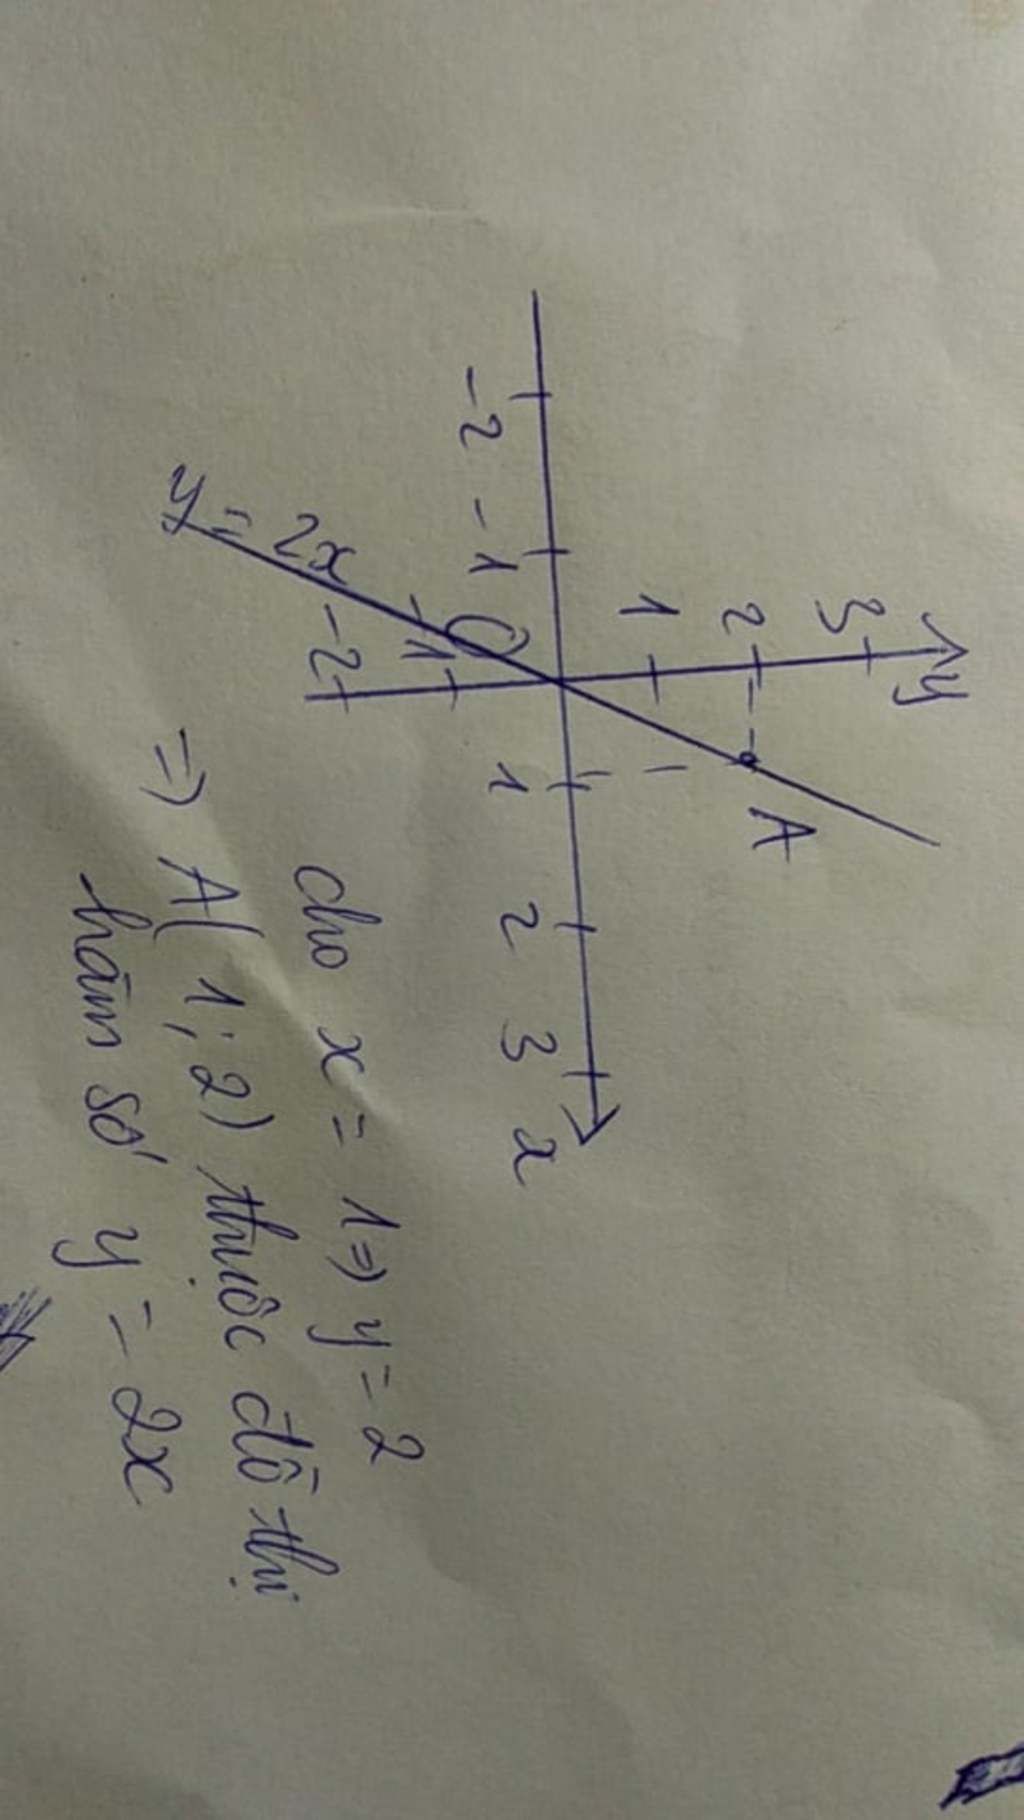 y
3
2
A
1
-2 -1 O 1 2 3 x
-1
-2
y = 2x
cho x = 1 => y = 2
=> A( 1; 2) thuộc đồ thị
hàm số y = 2x